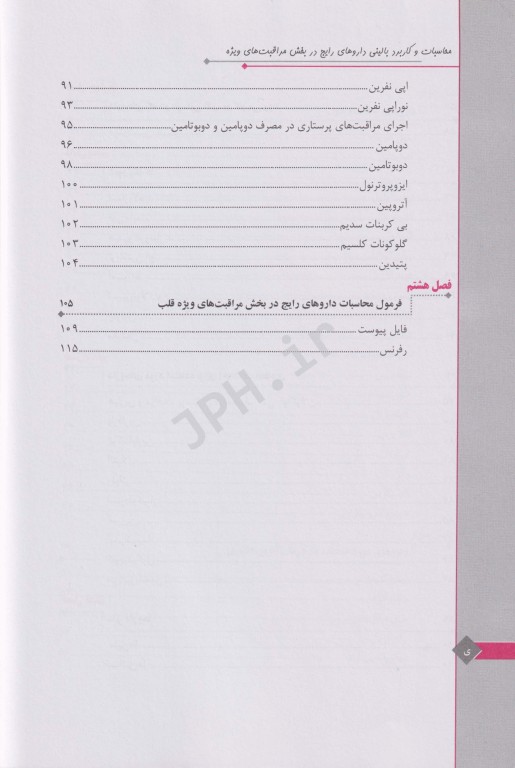 محاسبات و کاربرد بالینی داروهای رایج در بخش مراقبت‌های ویژه
اپی نفرین ۹۱
نوراپی نفرین ۹۳
اجرای مراقبت‌های پرستاری در مصرف دوپامین و دوبوتامین ۹۵
دوپامین ۹۶
دوبوتامین ۹۸
ایزوپروترنول ۱۰۰
آتروپین ۱۰۱
بی کربنات سدیم ۱۰۲
گلوکونات کلسیم ۱۰۳
پتیدین ۱۰۴
فصل هشتم
فرمول محاسبات داروهای رایج در بخش مراقبت‌های ویژه قلب ۱۰۵
فایل پیوست ۱۰۹
رفرنس ۱۱۵
JPH.ir
ی